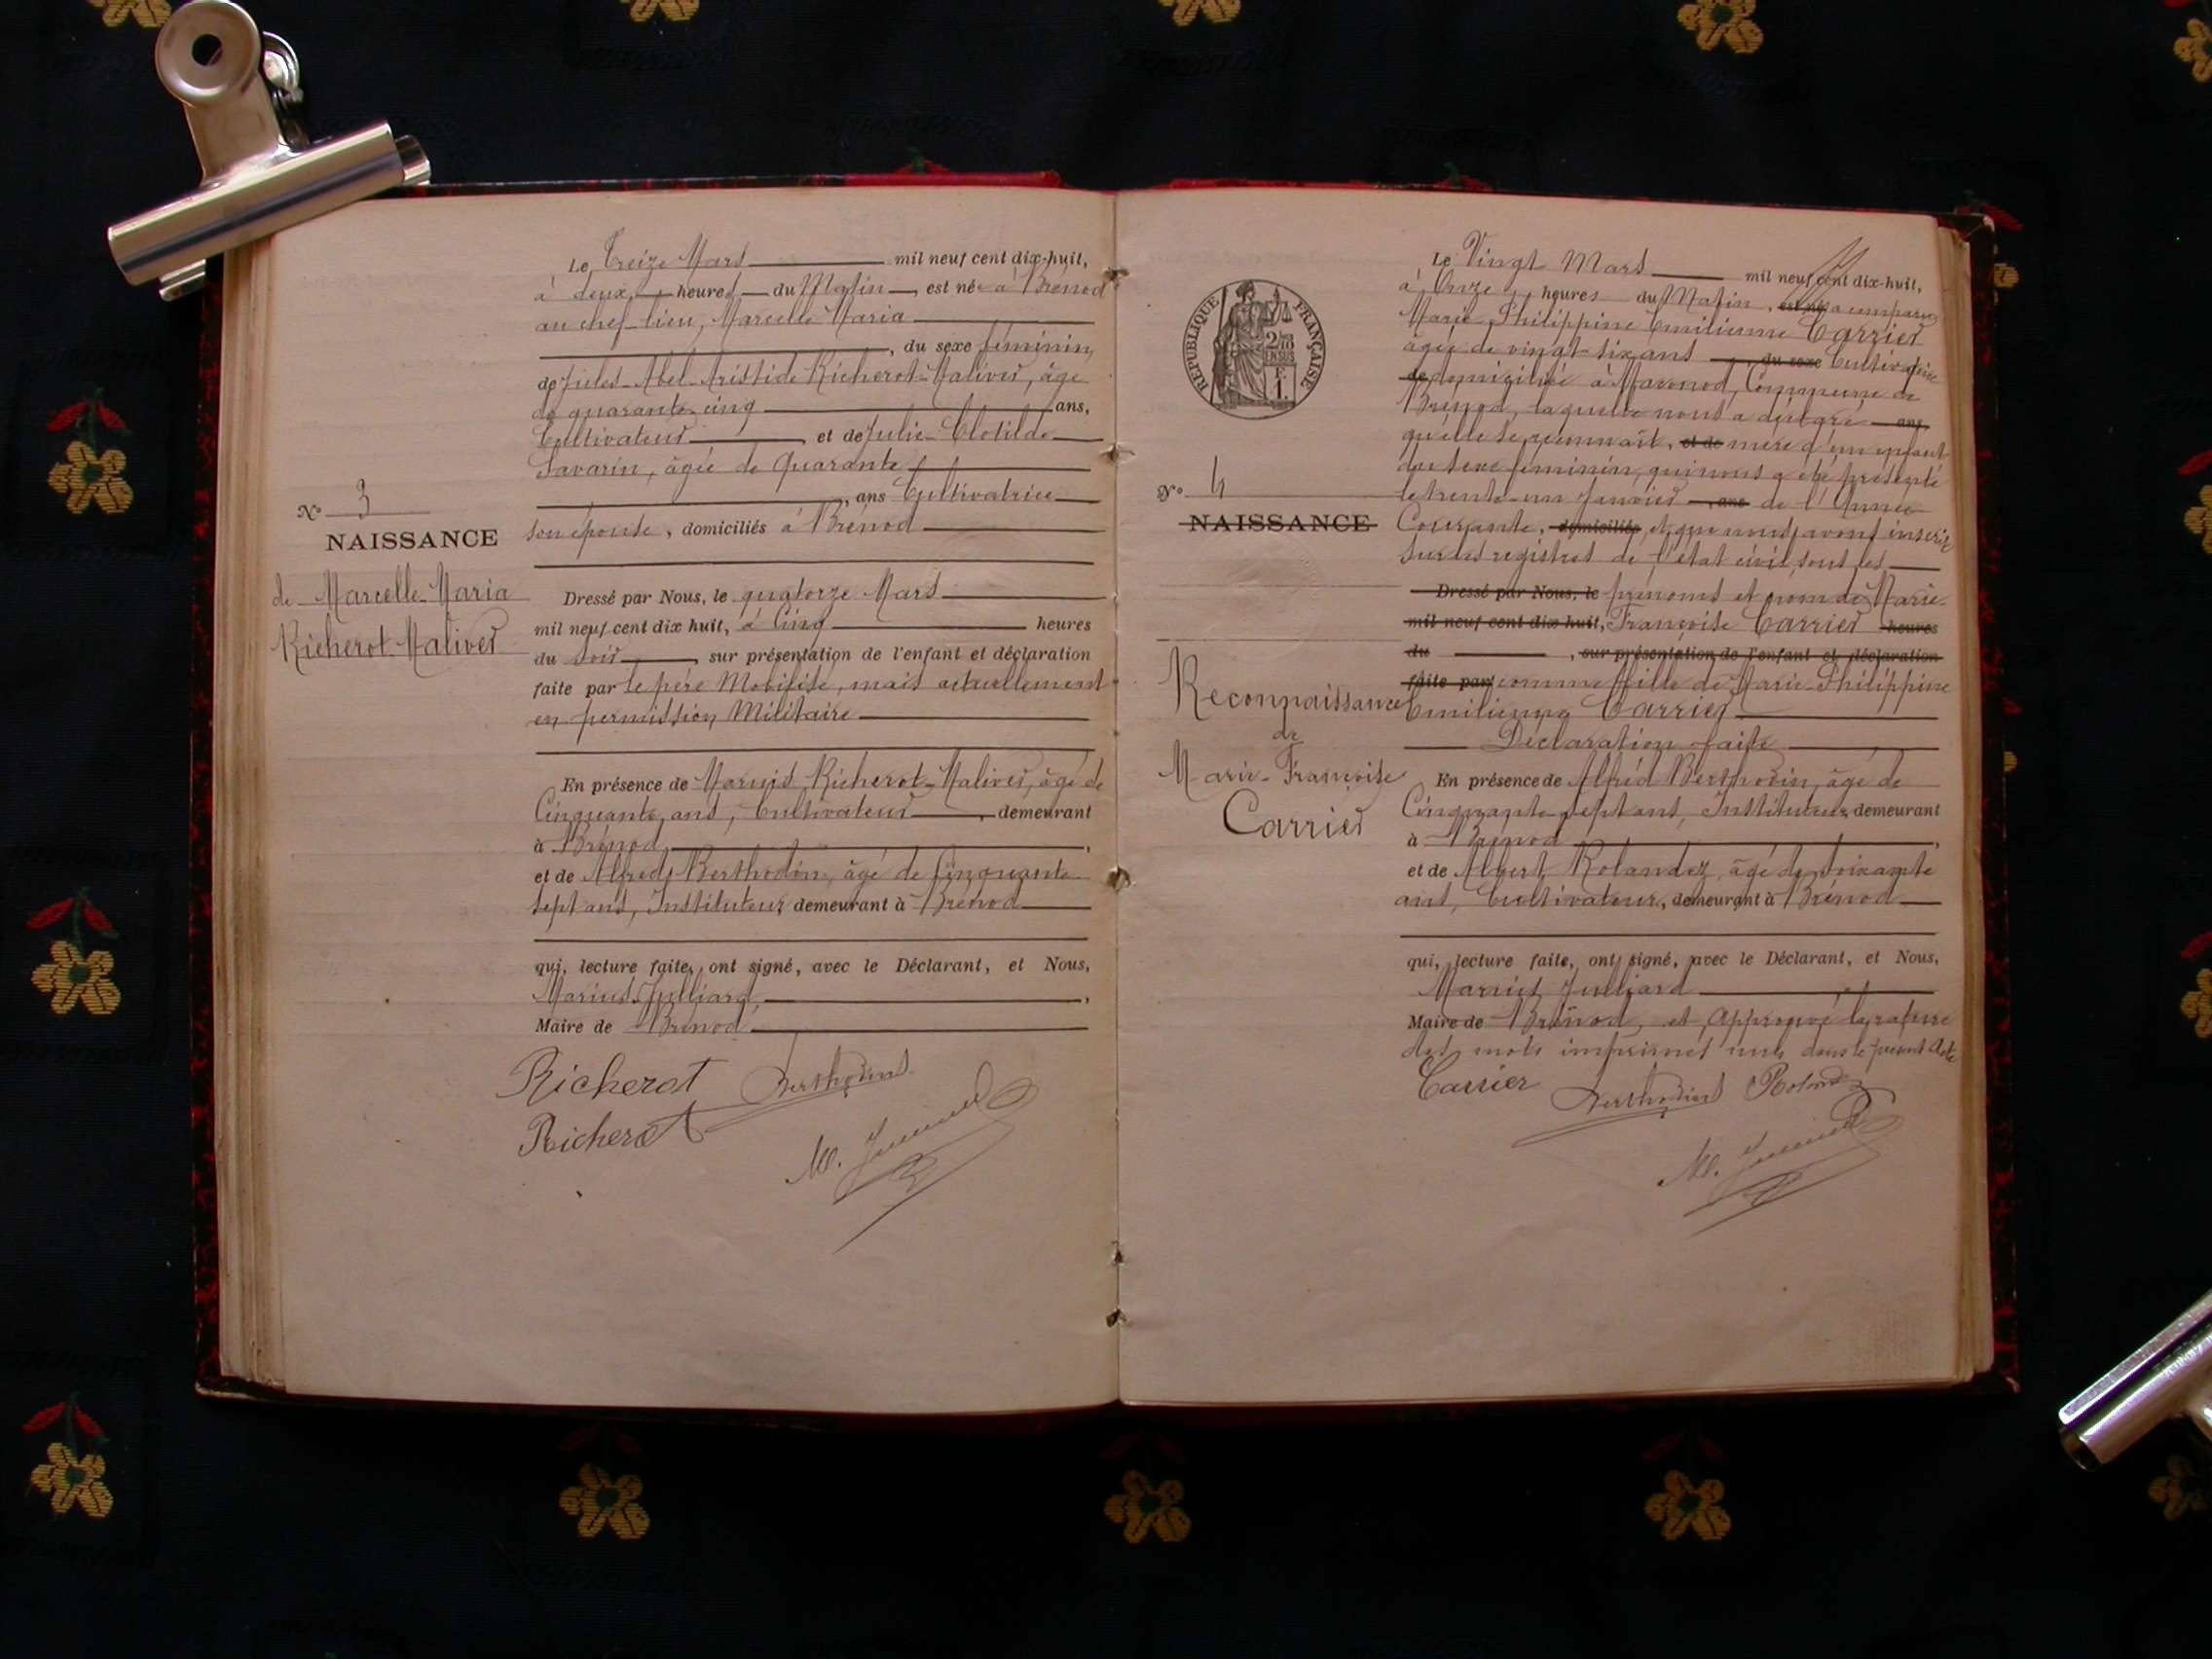 Le Treize Mars mil neuf cent dix-huit,
à deux heures du Matin, est née à Brénod
au chef-lieu, Marcelle Maria
, du sexe féminin,
de Jules-Abel-Aristide Richerot-Malivers, âgé
de quarante-cinq ans,
Cultivateur, et de Julie-Clotilde
Savarin, âgée de Quarante
, ans Cultivatrice
son épouse, domiciliés à Brénod
N° 3
NAISSANCE
de Marcelle-Maria
Richerot-Malivers
Dressé par Nous, le quatorze Mars
mil neuf cent dix huit, à Cinq heures
du soir, sur présentation de l'enfant et déclaration
faite par le père Mobilisé, mais actuellement
en permission Militaire
En présence de Marius Richerot-Malivers, âgé de
Cinquante ans, Cultivateur, demeurant
à Brénod,
et de Alfred Berthodin, âgé de Cinquante
sept ans, Instituteur, demeurant à Brénod
qui, lecture faite, ont signé, avec le Déclarant, et Nous,
Marius Julliard,
Maire de Brénod
Richerot Berthodin
Richerot
RÉPUBLIQUE FRANÇAISE
N° 4
NAISSANCE
Reconnaissance
de
Marie-Françoise
Carrier
Le Vingt Mars mil neuf cent dix-huit,
à Onze heures du Matin, est né a comparu
Marie-Philippine Emilienne Carrier
âgée de vingt-six ans, du sexe Cultivatrice
de domiciliée à Commune de
Brénod, laquelle nous a déclaré ans,
qu'elle se reconnaît, et de mère d'un enfant
du sexe féminin, qui nous a été présenté
le trente-un Janvier, ans de l'Année
Courante, domiciliés, et que nous avons inscrit
sur les registres de l'état civil, sous les
Dressé par Nous, le prénoms et nom de Marie-
mil neuf cent dix huit, Françoise Carrier heures
du , sur présentation de l'enfant et déclaration
faite par comme fille de Marie-Philippine
Emilienne Carrier
Déclaration faite
En présence de Alfred Berthodin, âgé de
Cinquante-sept ans, Instituteur, demeurant
à Brénod,
et de Albert Rolandez, âgé de soixante
ans, Cultivateur, demeurant à Brénod
qui, lecture faite, ont signé, avec le Déclarant, et Nous,
Marius Julliard
Maire de Brénod, et Approuvé la rature
des mots imprimés nuls dans le présent Acte
Carrier Berthodin Rolandez